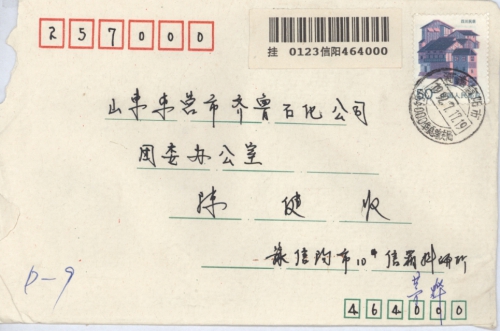 257000
挂 0123信阳464000
山东东营市齐鲁石化公司
团委办公室
陈健 收
信阳市10# 信箱
464000
D-9